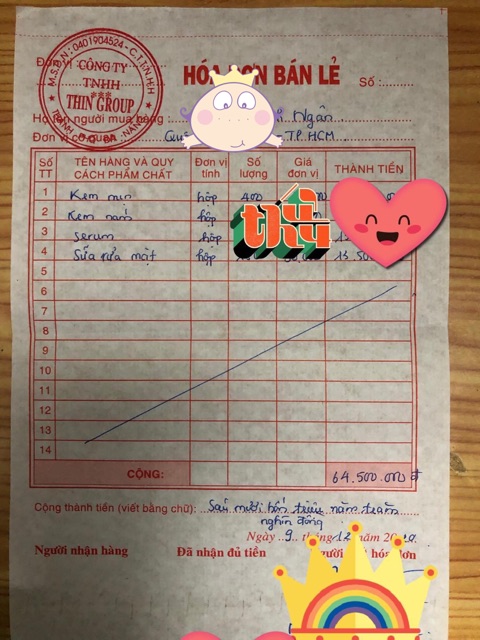 M.S.D.N: 0401904524 - C.T.T.N.H.H
CÔNG TY
TNHH
***
THIN GROUP
Đơn vị
HÓA ĐƠN BÁN LẺ
Số :
Họ tên người mua hàng : Ngân
Đơn vị cơ quan TP HCM
Số TT TÊN HÀNG VÀ QUY CÁCH PHẨM CHẤT Đơn vị tính Số lượng Giá đơn vị THÀNH TIỀN
1 Kem mịn hộp 400
2 Kem nám hộp
thứ
3 Serum hộp
4 Sữa rửa mặt hộp 13.500
5
6
7
8
9
10
11
12
13
14
CỘNG: 64.500.000 đ
Cộng thành tiền (viết bằng chữ): Sáu mươi bốn triệu năm trăm
nghìn đồng
Ngày 9 tháng 12 năm 20
Người nhận hàng Đã nhận đủ tiền hóa đơn